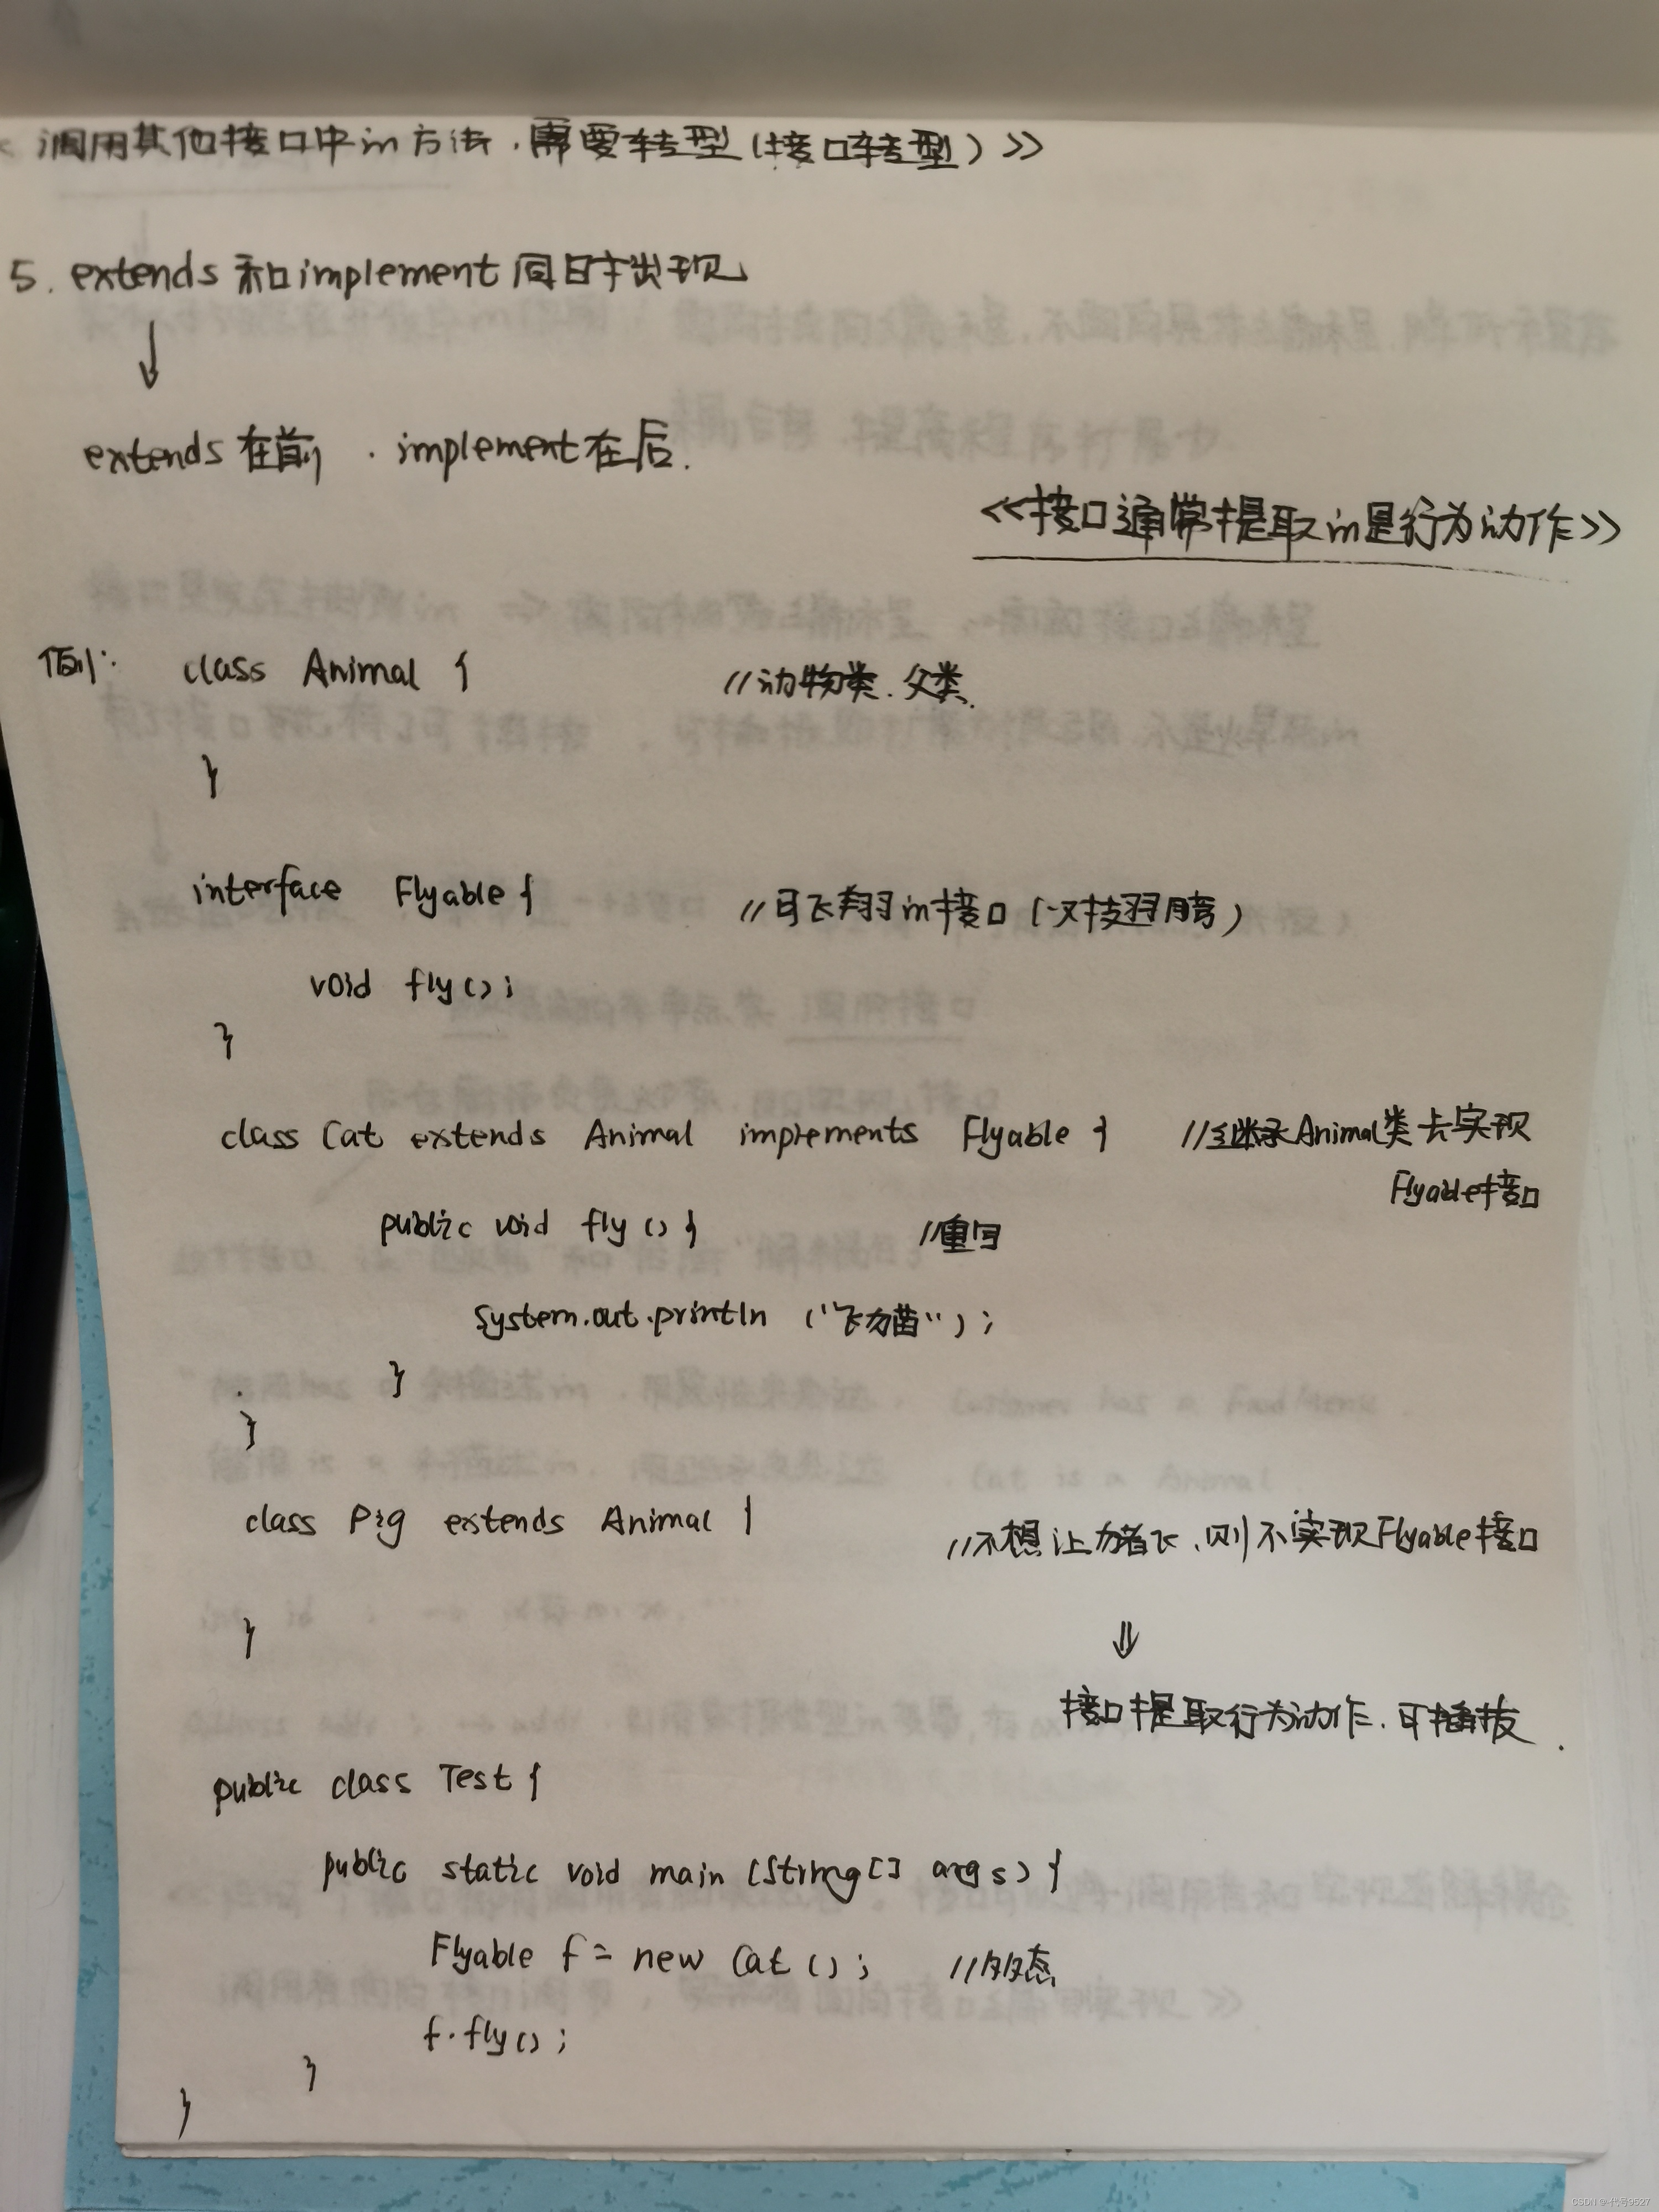 调用其他接口中的方法,需要转型(接口转型)>>
5. extends 和 implement 同时出现
↓
extends 在前 . implement 在后.
<<接口通常提取的是行为动作>>
例: class Animal { //动物类.父类.
}
interface Flyable { //可飞翔的接口(一双翅膀)
void fly();
}
class Cat extends Animal implements Flyable { //继承Animal类 实现
Flyable接口
public void fly() { //重写
System.out.println ("飞猫");
}
}
class Pig extends Animal { //不想让猪飞,则不实现Flyable接口
}
⇓
接口提取行为动作.可插拔.
public class Test {
public static void main (String[] args) {
Flyable f = new Cat(); //多态
f.fly();
}
}
CSDN @-代号9527